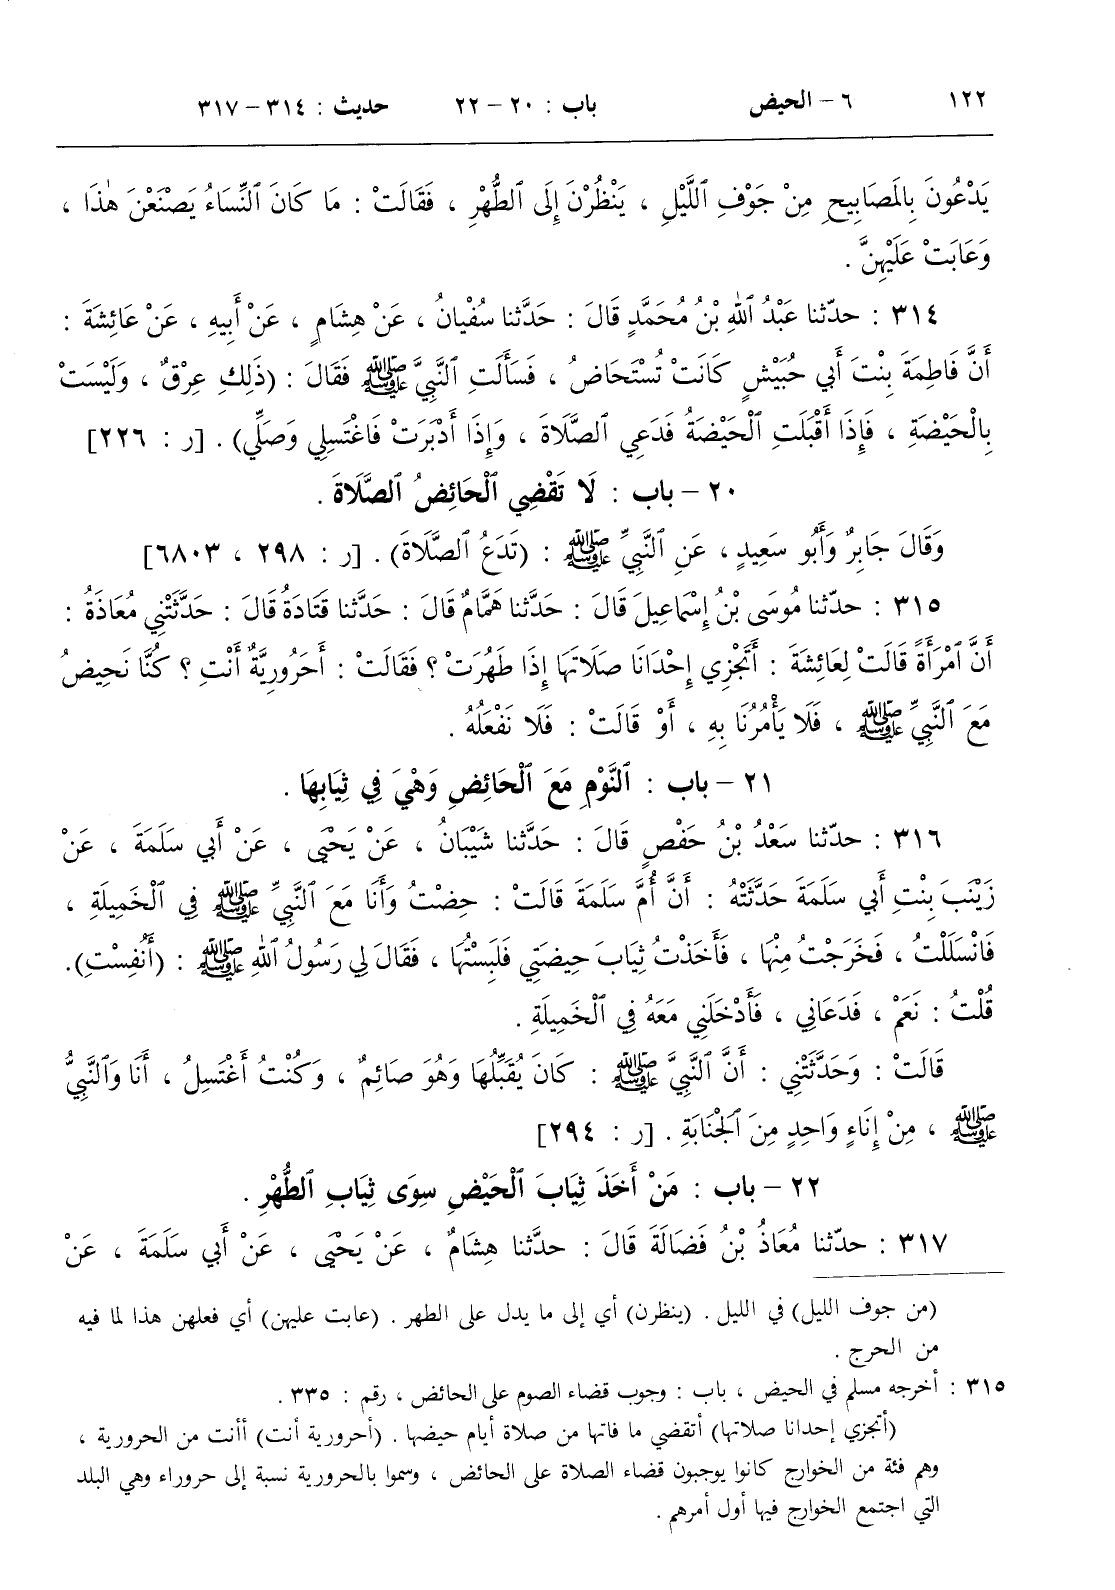 ١٢٢ ٦ - الحيض باب : ٢٠ - ٢٢ حديث : ٣١٤ - ٣١٧
يَدْعُونَ بِالمَصَابِيحِ مِنْ جَوْفِ ٱللَّيْلِ ، يَنْظُرْنَ إِلَى ٱلطُّهْرِ ، فَقَالَتْ : مَا كَانَ ٱلنِّسَاءُ يَصْنَعْنَ هٰذَا ،
وَعَابَتْ عَلَيْهِنَّ .
٣١٤ : حدّثنا عَبْدُ ٱللهِ بْنُ مُحَمَّدٍ قَالَ : حَدَّثَنا سُفْيانُ ، عَنْ هِشَامٍ ، عَنْ أَبِيهِ ، عَنْ عَائِشَةَ :
أَنَّ فَاطِمَةَ بِنْتَ أَبِي حُبَيْشٍ كَانَتْ تُسْتَحَاضُ ، فَسَأَلَتِ ٱلنَّبِيَّ ﷺ فَقَالَ : (ذَلِكِ عِرْقٌ ، وَلَيْسَتْ
بِالْحَيْضَةِ ، فَإِذَا أَقْبَلَتِ الْحَيْضَةُ فَدَعِي ٱلصَّلَاةَ ، وَإِذَا أَدْبَرَتْ فَاغْتَسِلِي وَصَلِّي) . [ر : ٢٢٦]
٢٠ - باب : لَا تَقْضِي ٱلْحَائِضُ ٱلصَّلَاةَ .
وَقَالَ جَابِرٌ وَأَبُو سَعِيدٍ ، عَنِ ٱلنَّبِيِّ ﷺ : (تَدَعُ ٱلصَّلَاةَ) . [ر : ٢٩٨ ، ٦٨٠٣]
٣١٥ : حدّثنا مُوسَى بْنُ إِسْمَاعِيلَ قَالَ : حَدَّثَنا هَمَّامٌ قَالَ : حَدَّثَنا قَتَادَةُ قَالَ : حَدَّثَتْنِي مُعَاذَةُ :
أَنَّ ٱمْرَأَةً قَالَتْ لِعَائِشَةَ : أَتَجْزِي إِحْدَانَا صَلَاتَهَا إِذَا طَهُرَتْ ؟ فَقَالَتْ : أَحَرُورِيَّةٌ أَنْتِ ؟ كُنَّا نَحِيضُ
مَعَ ٱلنَّبِيِّ ﷺ ، فَلَا يَأْمُرُنَا بِهِ ، أَوْ قَالَتْ : فَلَا نَفْعَلُهُ .
٢١ - باب : ٱلنَّوْمِ مَعَ ٱلْحَائِضِ وَهْيَ فِي ثِيَابِهَا .
٣١٦ : حدّثنا سَعْدُ بْنُ حَفْصٍ قَالَ : حَدَّثَنا شَيْبَانُ ، عَنْ يَحْيَى ، عَنْ أَبِي سَلَمَةَ ، عَنْ
زَيْنَبَ بِنْتِ أَبِي سَلَمَةَ حَدَّثَتْهُ : أَنَّ أُمَّ سَلَمَةَ قَالَتْ : حِضْتُ وَأَنَا مَعَ ٱلنَّبِيِّ ﷺ فِي ٱلْخَمِيلَةِ ،
فَانْسَلَلْتُ ، فَخَرَجْتُ مِنْهَا ، فَأَخَذْتُ ثِيَابَ حِيضَتِي فَلَبِسْتُهَا ، فَقَالَ لِي رَسُولُ ٱللهِ ﷺ : (أَنُفِسْتِ).
قُلْتُ : نَعَمْ ، فَدَعَانِي ، فَأَدْخَلَنِي مَعَهُ فِي ٱلْخَمِيلَةِ .
قَالَتْ : وَحَدَّثَتْنِي : أَنَّ ٱلنَّبِيَّ ﷺ : كَانَ يُقَبِّلُهَا وَهُوَ صَائِمٌ ، وَكُنْتُ أَغْتَسِلُ ، أَنَا وَٱلنَّبِيُّ
ﷺ ، مِنْ إِنَاءٍ وَاحِدٍ مِنَ ٱلْجَنَابَةِ . [ر : ٢٩٤]
٢٢ - باب : مَنْ أَخَذَ ثِيَابَ ٱلْحَيْضِ سِوَى ثِيَابِ ٱلطُّهْرِ .
٣١٧ : حدّثنا مُعَاذُ بْنُ فَضَالَةَ قَالَ : حَدَّثَنا هِشَامٌ ، عَنْ يَحْيَى ، عَنْ أَبِي سَلَمَةَ ، عَنْ
(من جوف الليل) في الليل . (ينظرن) أي إلى ما يدل على الطهر . (عابت عليهن) أي فعلهن هذا لما فيه
من الحرج .
٣١٥ : أخرجه مسلم في الحيض ، باب : وجوب قضاء الصوم على الحائض ، رقم : ٣٣٥ .
(أتجزي إحدانا صلاتها) أتقضي ما فاتها من صلاة أيام حيضها . (أحرورية أنت) أأنت من الحرورية ،
وهم فئة من الخوارج كانوا يوجبون قضاء الصلاة على الحائض ، وسموا بالحرورية نسبة إلى حروراء وهي البلد
التي اجتمع الخوارج فيها أول أمرهم .